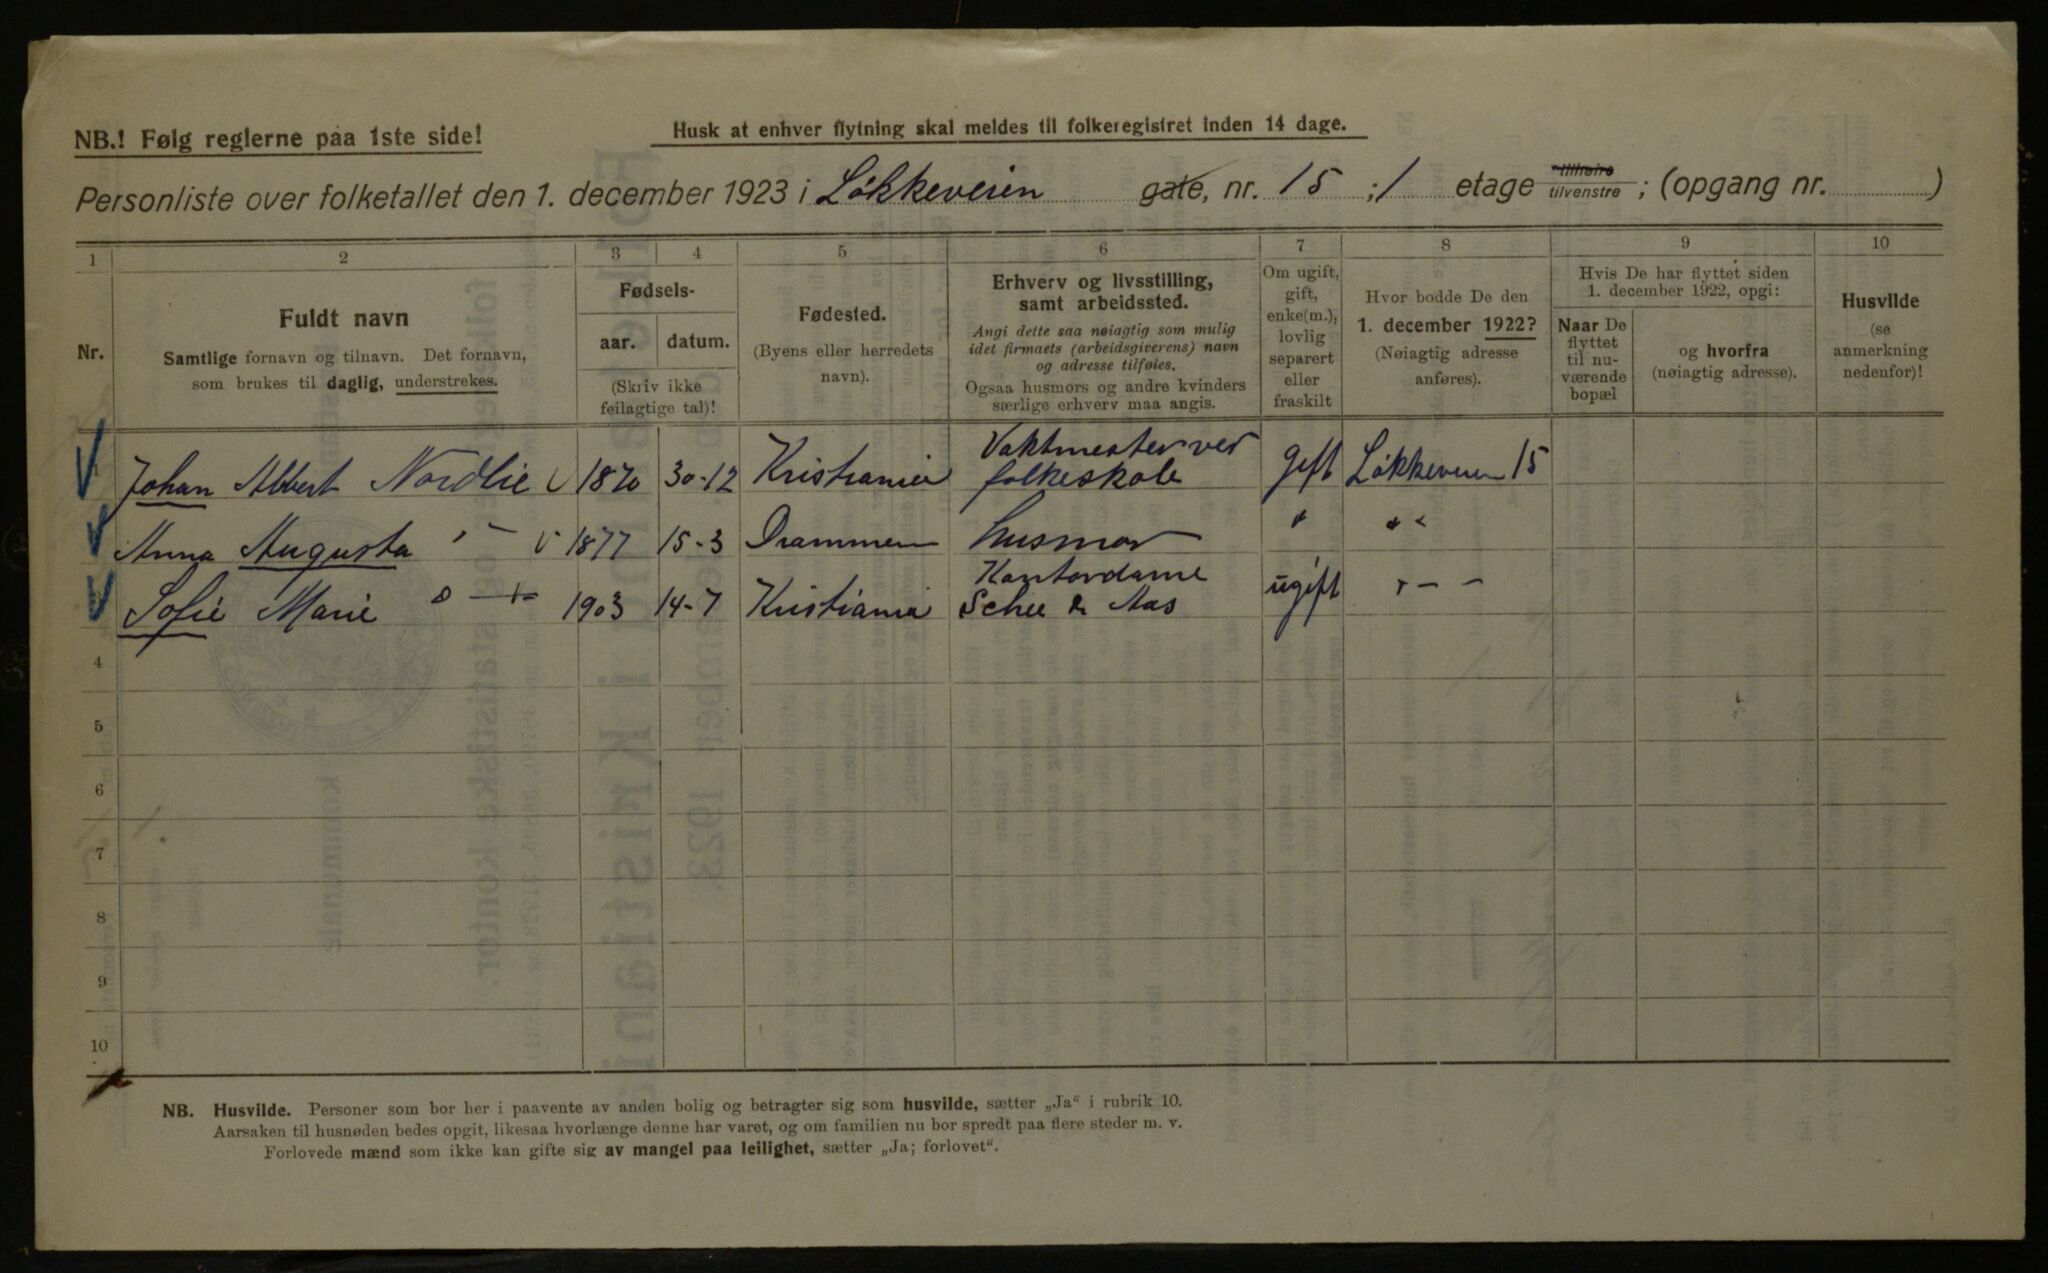 NB.! Følg reglerne paa 1ste side!
Husk at enhver flytning skal meldes til folkeregistret inden 14 dage.
Personliste over folketallet den 1. december 1923 i Løkkeveien gate, nr. 15 ; 1 etage tilhøire tilvenstre ; (opgang nr. )
1 2 3 4 5 6 7 8 9 10
Nr.
Fuldt navn
Samtlige fornavn og tilnavn. Det fornavn,
som brukes til daglig, understrekes.
Fødsels-
aar. datum.
(Skriv ikke
feilagtige tal)!
Fødested.
(Byens eller herredets
navn).
Erhverv og livsstilling,
samt arbeidssted.
Angi dette saa nøiagtig som mulig
idet firmaets (arbeidsgiverens) navn
og adresse tilføies.
Ogsaa husmors og andre kvinders
særlige erhverv maa angis.
Om ugift,
gift,
enke(m.),
lovlig
separert
eller
fraskilt
Hvor bodde De den
1. december 1922?
(Nøiagtig adresse
anføres).
Hvis De har flyttet siden
1. december 1922, opgi:
Naar De
flyttet
til nu-
værende
bopæl
og hvorfra
(nøiagtig adresse).
Husvilde
(se
anmerkning
nedenfor)!
Vaktmester ved
Johan Albert Nordlie 1870 30-12 Kristiania folkeskole gift Løkkeveien 15
Anna Augusta " 1877 15-3 Drammen husmor " "
Kontordame
Sofie Marie 1903 14-7 Kristiania Schee & Aas ugift " - -
4
5
6
7
8
9
10
NB. Husvilde. Personer som bor her i paavente av anden bolig og betragter sig som husvilde, sætter „Ja“ i rubrik 10.
Aarsaken til husnøden bedes opgit, likesaa hvorlænge denne har varet, og om familien nu bor spredt paa flere steder m. v.
Forlovede mænd som ikke kan gifte sig av mangel paa leilighet, sætter „Ja; forlovet“.